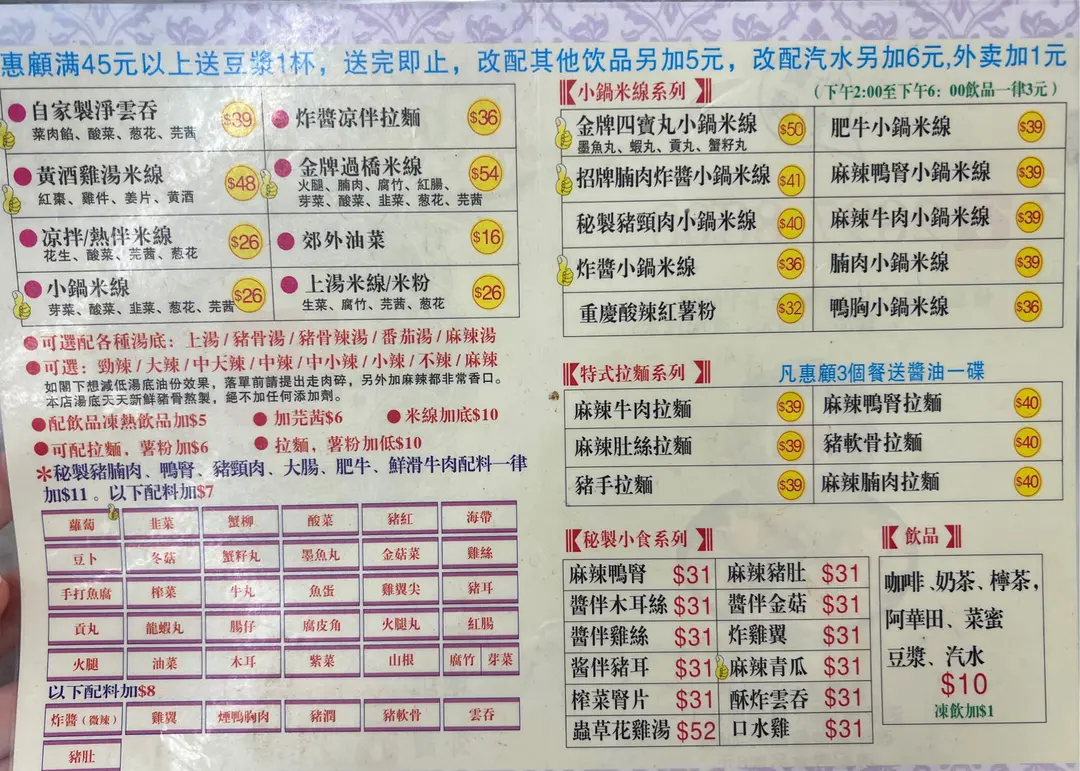 惠顧满45元以上送豆漿1杯，送完即止，改配其他饮品另加5元，改配汽水另加6元,外卖加1元
自家製淨雲吞 $39
菜肉餡、酸菜、葱花、芫茜
炸醬凉伴拉麵 $36
黃酒雞湯米線 $48
紅棗、雞件、姜片、黄酒
金牌過橋米線 $54
火腿、腩肉、腐竹、紅腸、
芽菜、酸菜、韭菜、葱花、芫茜
凉拌/熱伴米線 $26
花生、酸菜、芫茜、葱花
郊外油菜 $16
小鍋米線 $26
芽菜、酸菜、韭菜、葱花、芫茜
上湯米線/米粉 $26
生菜、腐竹、芫茜、葱花
可選配各種湯底：上湯/豬骨湯/豬骨辣湯/番茄湯/麻辣湯
可選：勁辣/大辣/中大辣/中辣/中小辣/小辣/不辣/麻辣
如閣下想減低湯底油份效果，落單前請提出走肉碎，另外加麻辣都非常香口。
本店湯底天天新鮮豬骨熬製，絕不加任何添加劑。
配飲品凍熱飲品加$5 加芫茜$6 米線加底$10
可配拉麵，薯粉加$6 拉麵，薯粉加低$10
*秘製豬腩肉、鴨腎、豬頸肉、大腸、肥牛、鮮滑牛肉配料一律
加$11 。以下配料加$7
蘿蔔 韭菜 蟹柳 酸菜 豬紅 海帶
豆卜 冬菇 蟹籽丸 墨魚丸 金菇菜 雞絲
手打魚腐 榨菜 牛丸 魚蛋 雞翼尖 豬耳
貢丸 龍蝦丸 腸仔 腐皮角 火腿丸 紅腸
火腿 油菜 木耳 紫菜 山根 腐竹 芽菜
以下配料加$8
炸醬（微辣） 雞翼 煙鴨胸肉 豬潤 豬軟骨 雲吞
豬肚
【小鍋米線系列】 （下午2:00至下午6：00飲品一律3元）
金牌四寶丸小鍋米線 $50
墨魚丸、蝦丸、貢丸、蟹籽丸
肥牛小鍋米線 $39
招牌腩肉炸醬小鍋米線 $41
麻辣鴨腎小鍋米線 $39
秘製豬頸肉小鍋米線 $40
麻辣牛肉小鍋米線 $39
炸醬小鍋米線 $36
腩肉小鍋米線 $39
重慶酸辣紅薯粉 $32
鴨胸小鍋米線 $36
【特式拉麵系列】 凡惠顧3個餐送醬油一碟
麻辣牛肉拉麵 $39 麻辣鴨腎拉麵 $40
麻辣肚絲拉麵 $39 豬軟骨拉麵 $40
豬手拉麵 $39 麻辣腩肉拉麵 $40
【秘製小食系列】
麻辣鴨腎 $31 麻辣豬肚 $31
醬伴木耳絲 $31 醬伴金菇 $31
醬伴雞絲 $31 炸雞翼 $31
酱伴豬耳 $31 麻辣青瓜 $31
榨菜腎片 $31 酥炸雲吞 $31
蟲草花雞湯 $52 口水雞 $31
【飲品】
咖啡、奶茶、檸茶，
阿華田、菜蜜
豆漿、汽水
$10
凍飲加$1